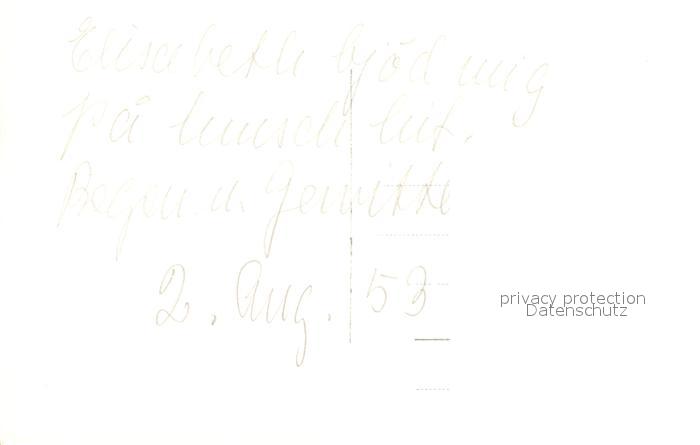 Elisabeth bjöd mig
på lunsch hit.
Regen u. Gewitte
2. Aug. 53
privacy protection
Datenschutz